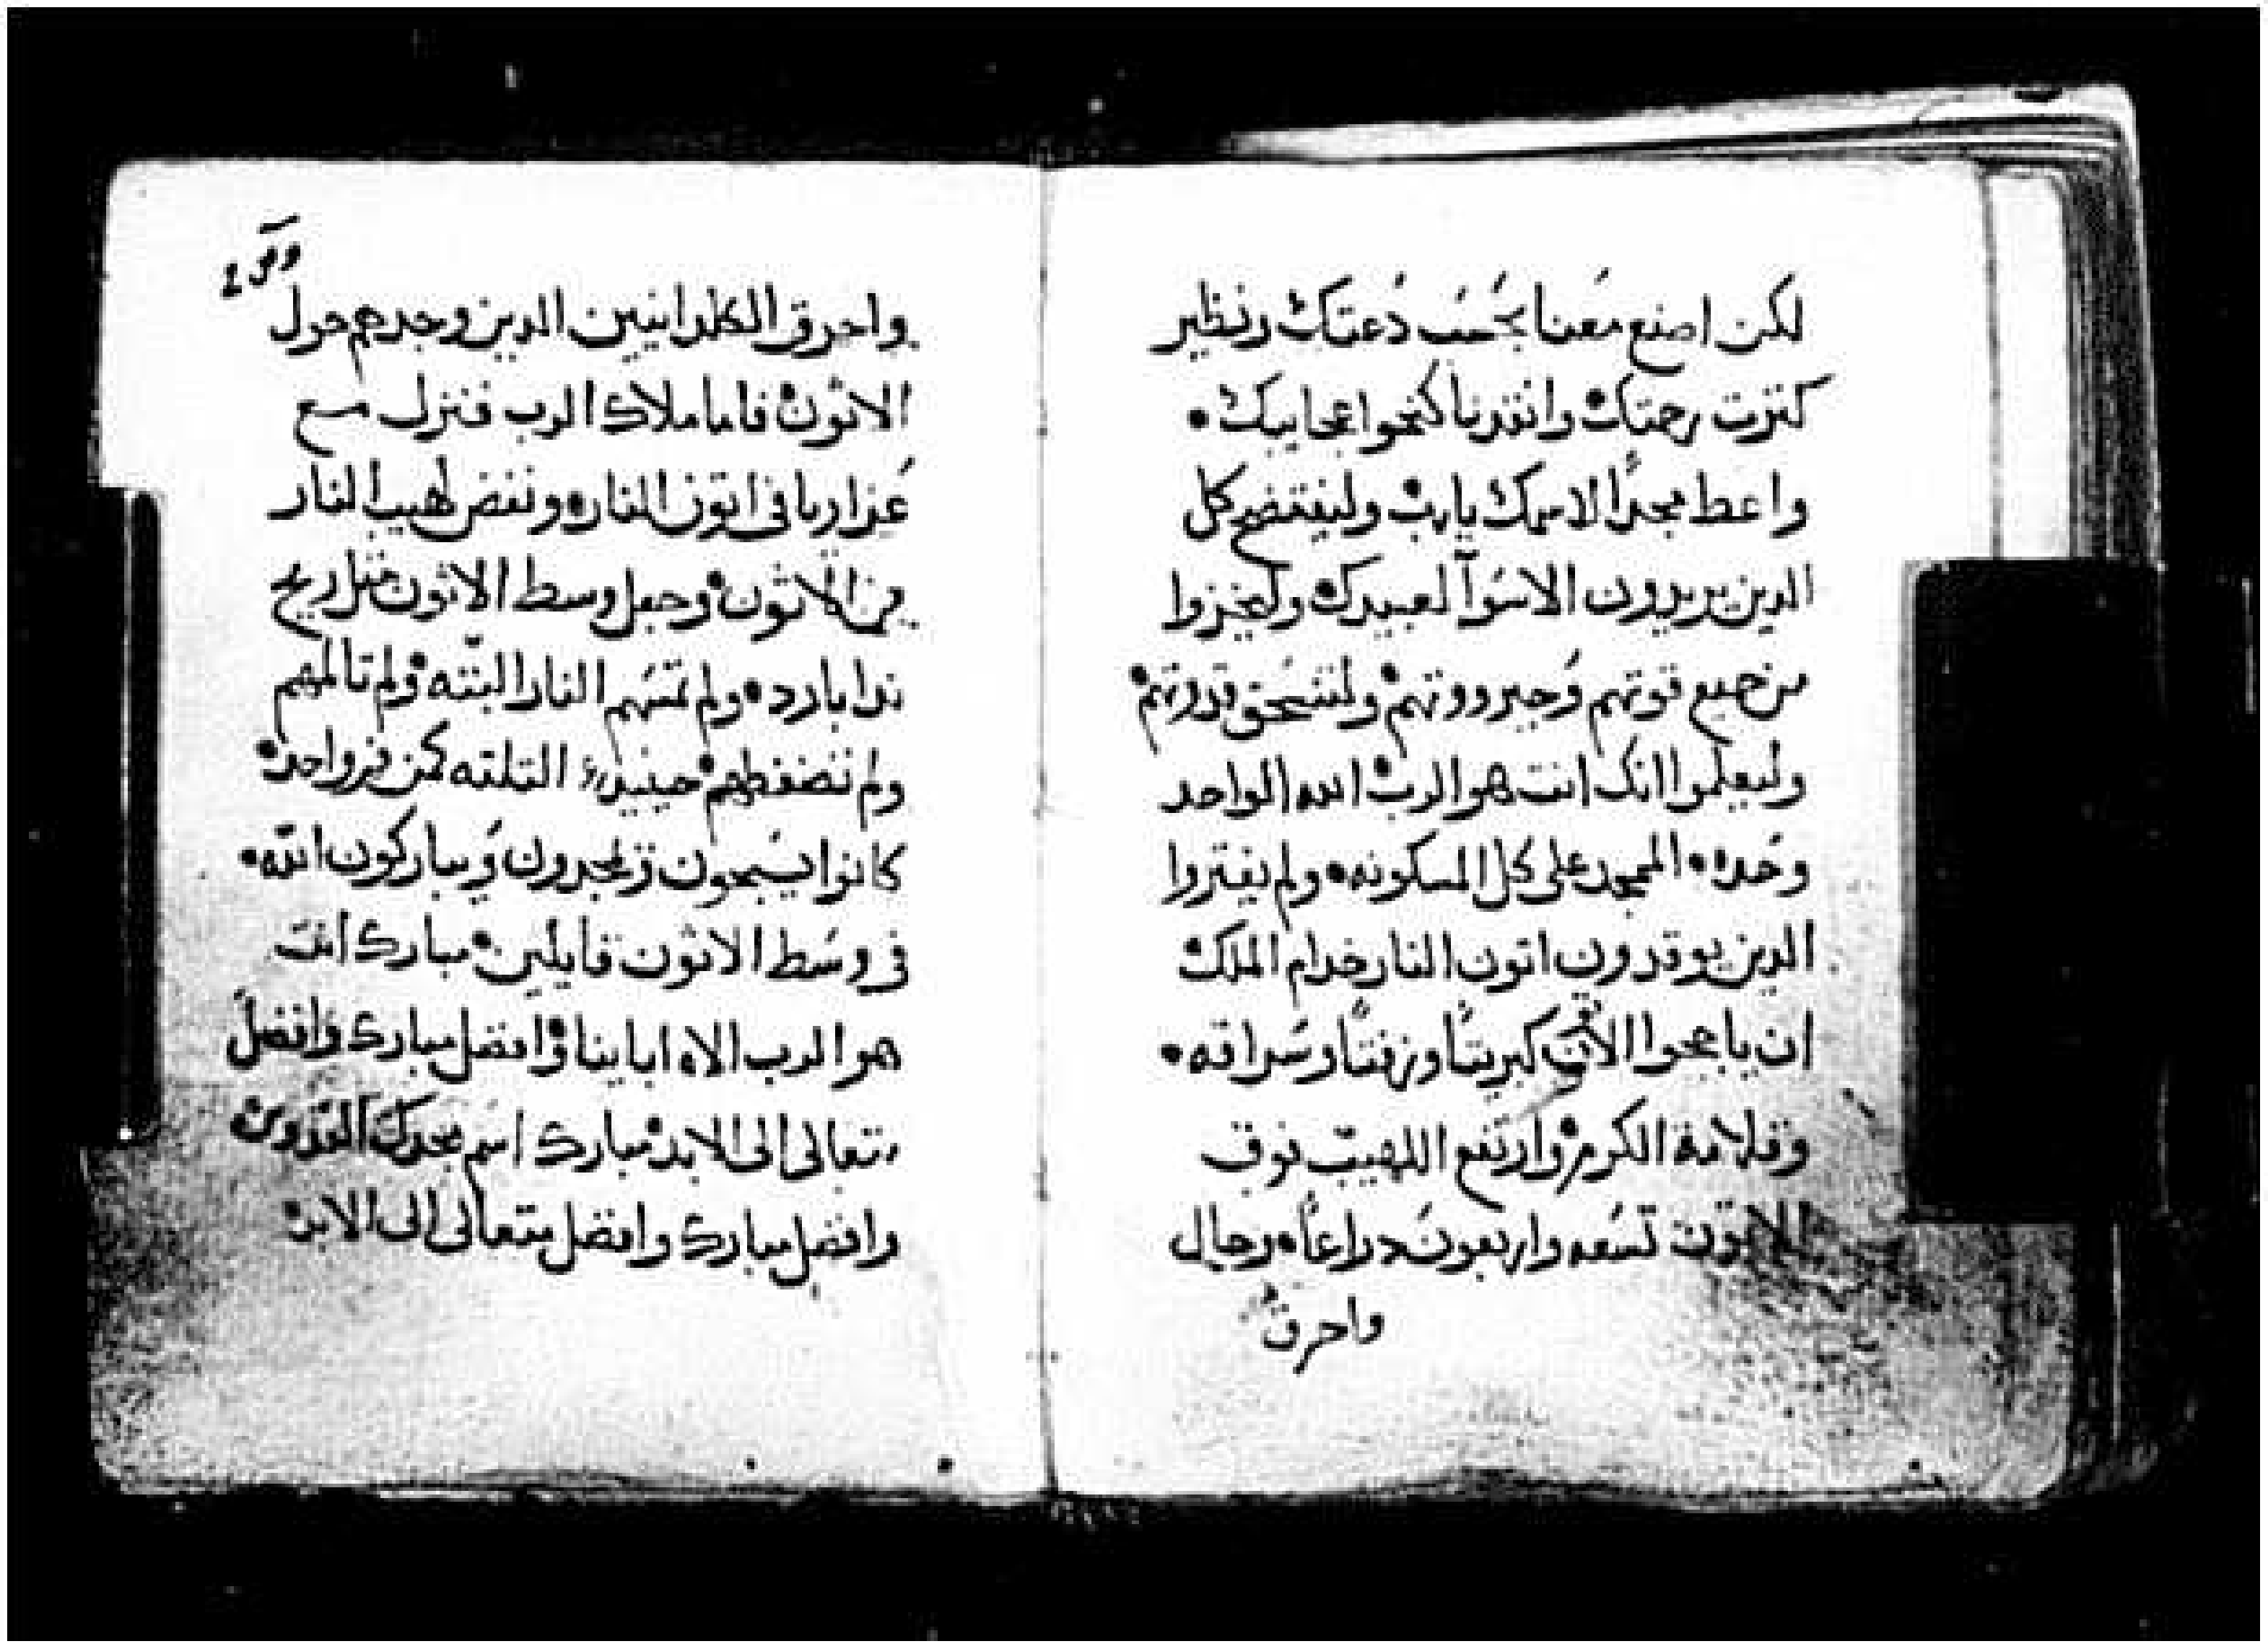 لكن اصنع معنا بحسب دعتك ونظير
كثرت رحمتك وانقدنا كنحو اعجايبك
واعط مجدًا لاسمك يا رب وليفتضح كل
الدين يريدون الاسوآ لعبيدك وليخزوا
من جميع قوتهم وجبرووتهم ولتنسحق قدرتهم
وليعلموا انك انت هو الرب الله الواحد
وحده المجد على كل المسكونه ولم يفتروا
الدين يوقدون اتون النار خدام الملك
ان ياججوا الاتون كبريتًا وزفتًا وسراقه
وقلامة الكرم وارتفع اللهيب فوق
الاتون تسعه واربعون دراعًا وجال
واحرق
واحرق الكلدانيين الدين وجدهم حول
الاتون فاما ملاك الرب فنزل مع
عزاريا فى اتون النار ونفض لهيب النار
من الاتون وجعل وسط الاتون مثل ريح
ندا بارد ولم تمسهم النار البته ولم تالمهم
ولم تضغطهم حينيدٍ التلته كمن فم واحد
كانوا يسبحون ويمجدون ويباركون الله
فى وسط الاتون قايلين مبارك انت
هو الرب الاه اباينا وافضل مبارك وافضل
متعالى الى الابد مبارك اسم مجدك القدوس
وافضل مبارك وافضل متعالى الى الابد